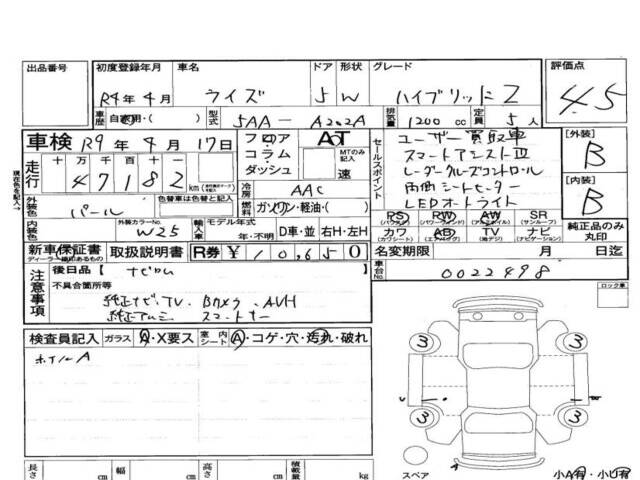 出品番号 初度登録年月 車名 ドア 形状 グレード 評価点
R4年4月 ライズ 5 W ハイブリッドZ 4.5
車歴 自家用・( ) 型式 5AA-A202A 排気量 1200cc 定員 5人
車検 R9年4月17日 フロア コラム ダッシュ AT MTのみ記入 速
走行 十万千百十一
47182 km
冷房 AAC
外装色 パール 色替車は色替前と記入 燃料 ガソリン・軽油・( )
内装色 外装カラーNo. W25 輸入車 モデル年式 年・不明 D車・並 右H・左H
セールスポイント
ユーザー買取車
スマートアシストⅢ
レーダークルーズコントロール
両側シートヒーター
LEDオートライト
PS (パワステ) PW (パワーウインド) AW (アルミホイル) SR (サンルーフ)
カワ (カワシート) AB (エアバッグ) TV (地デジ) ナビ (ナビゲーション)
[外装] B
[内装] B
純正品のみ丸印
新車保証書 ディーラー欄印あるもの 取扱説明書 R券 ¥10,650 名変期限 月 日迄
注意事項 後日品【 ナビロム 】 車台No. 0022498
不具合箇所等
純正ナビ、TV、Bカメラ、AVH
純正アルミ スマートキー
ロック車
検査員記入 ガラス A・X要ス 室内シート A・コゲ・穴・汚れ・破れ
ホイールA
3 3
3 3
A
スペア
小A有・小U有
長さ cm 幅 cm 高さ cm 積載量 kg
現在色を記入→